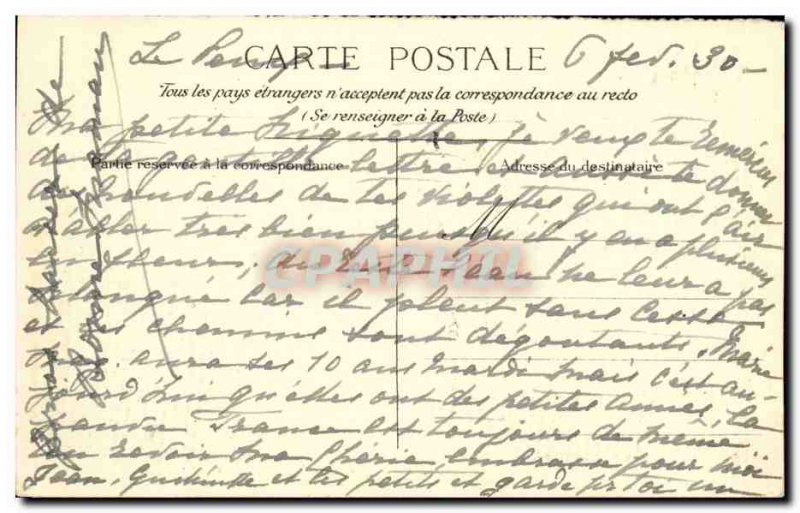 Le
CARTE POSTALE
6 fev. 30 -
Tous les pays étrangers n'acceptent pas la correspondance au recto
(Se renseigner à la Poste)
Ma petite je veux te remercier
Partie réservée à la correspondance
Adresse du destinataire
de ta gentille lettre et te donner
des nouvelles de tes violettes qui ont l'air
d'aller très bien puisqu'il y en a plusieurs
en fleurs, du reste l'eau ne leur a pas
manqué car il pleut sans cesse
CPAPHIL
et les chemins sont dégoutants. Marie
aura ses 10 ans Mardi mais c'est au-
jourd'hui qu'elles ont des petites amies, la
France est toujours de même
Au revoir ma chérie, embrasse pour moi
Jean, et les petits et garde pr toi un